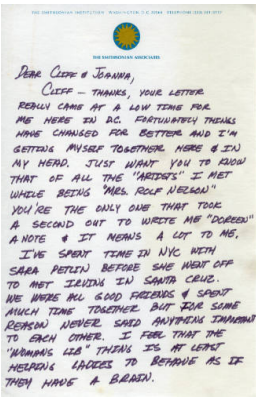 THE SMITHSONIAN INSTITUTION · WASHINGTON, D.C. 20560 · TELEPHONE
THE SMITHSONIAN ASSOCIATES
DEAR CLIFF & JOANNA,
CLIFF — THANKS, YOUR LETTER
REALLY CAME AT A LOW TIME FOR
ME HERE IN D.C. FORTUNATELY THINGS
HAVE CHANGED FOR BETTER AND I'M
GETTING MYSELF TOGETHER HERE & IN
MY HEAD. JUST WANT YOU TO KNOW
THAT OF ALL THE "ARTISTS" I MET
WHILE BEING "MRS. ROLF NELSON"
YOU'RE THE ONLY ONE THAT TOOK
A SECOND OUT TO WRITE ME "DOREEN"
A NOTE & IT MEANS A LOT TO ME.
I'VE SPENT TIME IN NYC WITH
SARA PETLIN BEFORE SHE WENT OFF
TO MET IRVING IN SANTA CRUZ.
WE WERE ALL GOOD FRIENDS & SPENT
MUCH TIME TOGETHER BUT FOR SOME
REASON NEVER SAID ANYTHING IMPORTANT
TO EACH OTHER. I FEEL THAT THE
"WOMANS LIB" THING IS AT LEAST
HELPING LADIES TO BEHAVE AS IF
THEY HAVE A BRAIN.